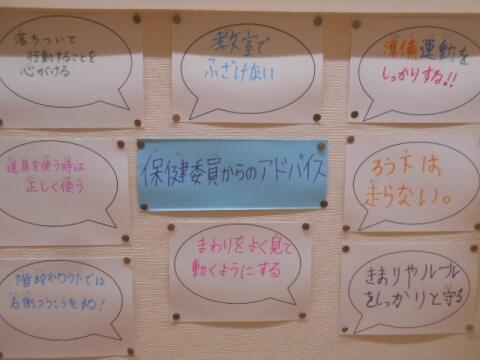 落ちついて
行動することを
心がける
教室で
ふざけない
準備運動を
しっかりする!!
道具を使う時は
正しく使う
保健委員からのアドバイス
ろう下は
走らない。
階段やろう下では
右側つうこうをする!
まわりをよく見て
動くようにする
きまりやルール
をしっかりと守る